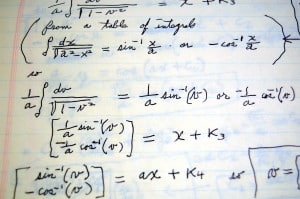 1/a ∫ dv/√(1-v²) = x + K3
(from a table of integrals
∫ dx/√(a²-x²) = sin⁻¹ x/a · or -cos⁻¹ x/a)
so
1/a ∫ dv/√(1-v²) = 1/a sin⁻¹(v) or -1/a cos⁻¹(v)
[1/a sin⁻¹(v) / -1/a cos⁻¹(v)] = x + K3
[sin⁻¹(v) / -cos⁻¹(v)] = ax + K4 so v =